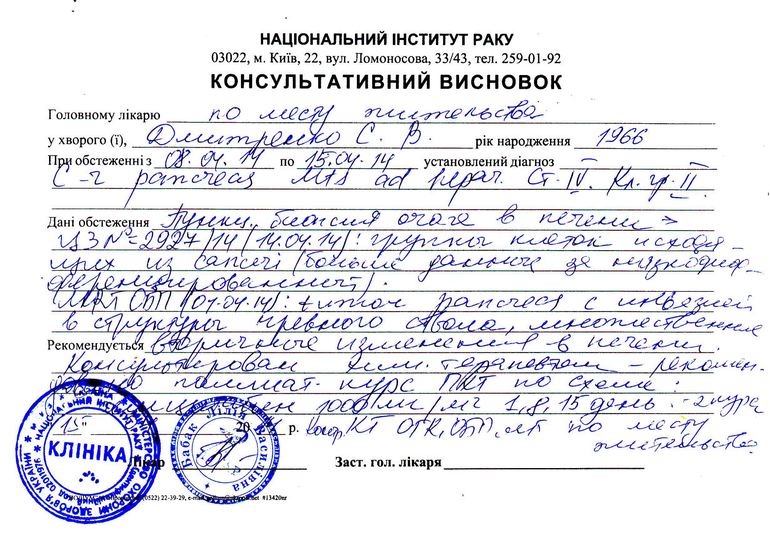 НАЦІОНАЛЬНИЙ ІНСТИТУТ РАКУ
03022, м. Київ, 22, вул. Ломоносова, 33/43, тел. 259-01-92
КОНСУЛЬТАТИВНИЙ ВИСНОВОК
Головному лікарю по месту жительства
у хворого (ї), Дмитренко С. В. рік народження 1966
При обстеженні з 08.04.14 по 15.04.14 установлений діагноз
C-r panccas Mts ad hepar. Ст. IV. Кл. гр. II
Дані обстеження Пункц. биопсия очага в печени >
ЦЗ №-2927/14 (14.04.14): группы клеток исходя-
щих из (больше данных за низкодиф-
ференцированный).
МРТ ОБП (01.04.14): panccas с инвазией
в структуры чревного ствола, множественные
Рекомендується вторичные изменения в печени.
Консультирован хим. терапевтом – рекомен-
довано паллиат. курс ПХТ по схеме:
1000 мг/м2 1, 8, 15 день. - 2 курса
"15" 20 р. КТ ОГК, ОБП, МТ по месту
жительства.
Лікар Заст. гол. лікаря
КЛІНІКА
Бабак Лілія Василівна
(0522) 22-39-29, #13420пг